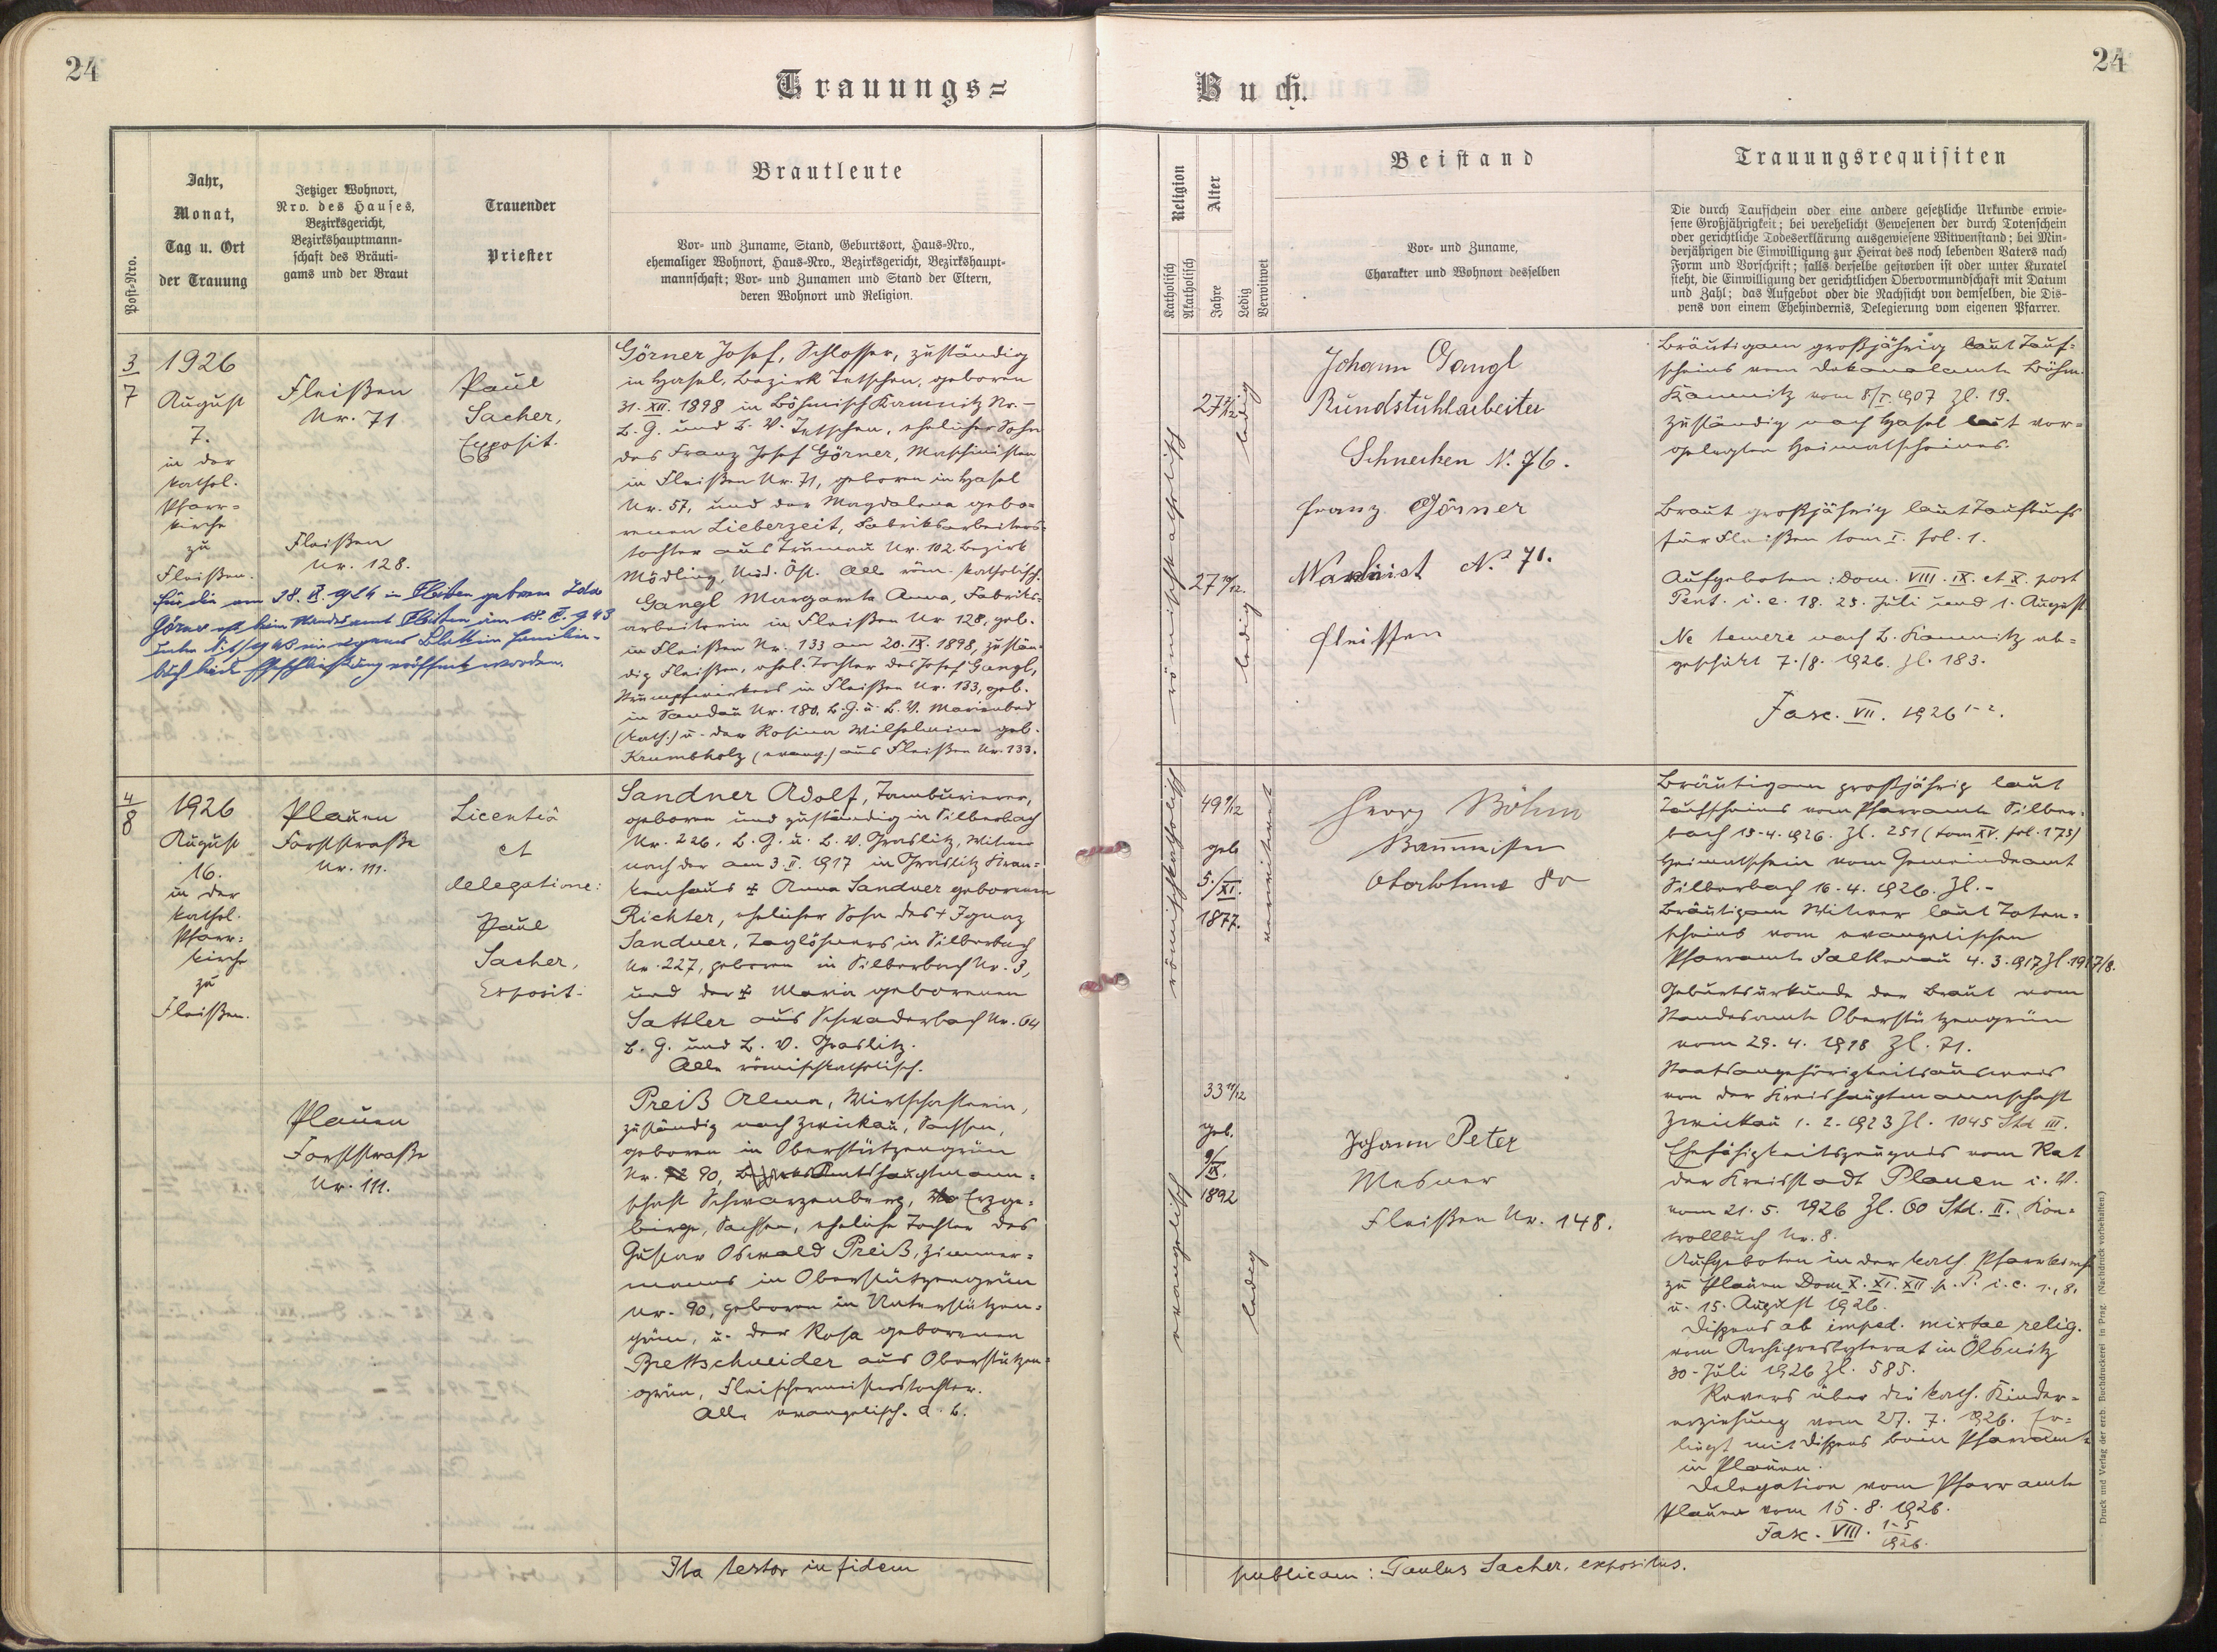 24
Trauungs=
Post-Nro.
Jahr,
Monat,
Tag u. Ort
der Trauung
Jetziger Wohnort,
Nro. des Hauses,
Bezirksgericht,
Bezirkshauptmann-
schaft des Bräuti-
gams und der Braut
Trauender
Priester
Brautleute
Vor- und Zuname, Stand, Geburtsort, Haus-Nro.,
ehemaliger Wohnort, Haus-Nro., Bezirksgericht, Bezirkshaupt-
mannschaft; Vor- und Zunamen und Stand der Eltern,
deren Wohnort und Religion.
3/7
1926
August
7.
in der
kathol.
Pfarr-
kirche
zu
Fleißen.
Fleißen
Nr. 71
Fleißen
Nr. 128.
Paul
Sacher,
Exposit.
Görner Josef, Schlosser, zuständig
in Hasel, Bezirk Tetschen, geboren
31. XII. 1898 in Böhmisch Kamnitz Nr. –
B. G. und B. V. Tetschen, ehelicher Sohn
des Franz Josef Görner, Maschinisten
in Fleißen Nr. 71, geboren in Hasel
Nr. 57, und der Magdalena gebo=
renen Lieberzeit, Fabriksarbeiters=
tochter aus Trumau Nr. 102 Bezirk
Mödling, Nied. Öst. Alle röm. katholisch.
Gangl Margareta Anna, Fabriks=
arbeiterin in Fleißen Nr 128, geb.
in Fleißen Nr. 133 am 20. IX. 1898, zustän=
dig Fleißen, ehel. Tochter des Josef Gangl,
Strumpfwirkers in Fleißen Nr. 133, geb.
in Sandau Nr. 180, B. G. u. B. V. Marienbad
(kath.) u. der Rosina Wilhelmine geb.
Krumbholz (evang.) aus Fleißen Nr. 133.
Für die am 28. in Fleißen geborene
Görner ist beim Standesamt Fleißen am 18.
unter ein eigenes Blatt im Familien-
buch eröffnet worden.
4/8
1926
August
16.
in der
kathol.
Pfarr=
kirche
zu
Fleißen.
Plauen
Forststraße
Nr. 111.
Plauen
Forststraße
Nr. 111.
Licentia
et
delegatione:
Paul
Sacher,
Exposit.
Sandner Adolf, Tambourierer,
geboren und zuständig in Silberbach
Nr. 226, B. G. u. B. V. Graslitz, Witwer
nach der am 3. II. 1917 in Graslitz Kran=
kenhaus † Anna Sandner geborenen
Richter, ehelicher Sohn des † Ignaz
Sandner, Taglöhners in Silberbach
Nr. 227, geboren in Silberbach Nr. 3,
und der † Maria geborenen
Sattler aus Schwaderbach Nr. 64
B. G. und B. V. Graslitz.
Alle römischkatholisch.
Preiß Alma, Wirtschafterin,
zuständig nach Zwickau, Sachsen,
geboren in Oberstützengrün
Nr. 90, Amtshauptmann=
schaft Schwarzenberg, Erzge=
birge, Sachsen, eheliche Tochter des
Gustav Oswald Preiß, Zimmer=
manns in Oberstützengrün
Nr. 90, geboren in Unterstützen=
grün, u. der Rosa geborenen
Brettschneider aus Oberstützen=
grün, Fleischermeisterstochter.
Alle evangelisch. A. B.
Ita testor in fidem
24
Buch.
Religion
Katholisch
Akatholisch
Alter
Jahre
Ledig
Verwitwet
Beistand
Vor- und Zuname,
Charakter und Wohnort desselben
Trauungsrequisiten
Die durch Taufschein oder eine andere gesetzliche Urkunde erwie-
sene Großjährigkeit; bei verehelicht Gewesenen der durch Totenschein
oder gerichtliche Todeserklärung ausgewiesene Witwenstand; bei Min-
derjährigen die Einwilligung zur Heirat des noch lebenden Vaters nach
Form und Vorschrift; falls derselbe gestorben ist oder unter Kuratel
steht, die Einwilligung der gerichtlichen Obervormundschaft mit Datum
und Zahl; das Aufgebot oder die Nachsicht von demselben, die Dis-
pens von einem Ehehindernis, Delegierung vom eigenen Pfarrer.
römischkatholisch
27 7/12
ledig
27 10/12
ledig
Johann Gangl
Rundstuhlarbeiter
Schnecken N. 76.
Franz Görner
Maschinist No 71.
Fleissen
Bräutigam großjährig laut Tauf=
scheins vom Dekanalamte Böhm.
Kamnitz vom 8/I. 1907 Zl. 19.
Zuständig nach Hasel laut vor=
gelegten Heimatscheines.
Braut großjährig laut Taufbuchs
für Fleißen tom I. fol. 1.
Aufgeboten: Dom. VIII. IX. et X. post
Pent. i. e. 18. 25. Juli und 1. August
Ne temere nach B. Kamnitz ab=
geschickt 7./8. 1926. Zl. 183.
Fasc. VII. 1926 1-2.
römischkatholisch
49 9/12
geb
5./XI.
1877.
verwitwet
evangelisch
33 11/12
geb.
9/IX.
1892
ledig
Georg Böhm
Baumeister
Oberlohma 80
Johann Peter
Mesner
Fleißen Nr. 148.
Bräutigam großjährig laut
Taufscheins vom Pfarramte Silber=
bach 15-4. 1926. Zl. 251 (tom XV. fol. 175)
Heimatschein vom Gemeindeamt
Silberbach 16-4. 1926. Zl.-
Bräutigam Witwer laut Toten=
scheins vom evangelischen
Pfarramte Falkenau 4. 3. 1917 Zl. 1917/8.
Geburtsurkunde der Braut vom
Standesamte Oberstützengrün
vom 29. 4. 1918 Zl. 71.
Staatsangehörigkeitsausweis
von der Kreishauptmannschaft
Zwickau 1. 2. 1923 Zl. 1045 Std III.
Ehefähigkeitszeugnis vom Rat
der Kreisstadt Plauen i. V.
vom 21. 5. 1926 Zl. 60 Std. II. Kon=
trollbuch Nr. 8.
Aufgeboten in der kath Pfarrkirche
zu Plauen Dom X. XI. XII p. P. i. e. 1., 8.
u. 15. August 1926.
Dispens ab imped. mixtae relig.
vom Archipresbyterat in Ölsnitz
30. Juli 1926 Zl. 585.
Revers über die kath. Kinder=
erziehung vom 27. 7. 1926. Er=
liegt mit Dispens beim Pfarramte
in Plauen.
Delegation vom Pfarramte
Plauen vom 15. 8. 1926.
Fasc. VIII. 1-5/1926.
publicam: Paulus Sacher, expositus.
Druck und Verlag der erzb. Buchdruckerei in Prag. (Nachdruck vorbehalten.)